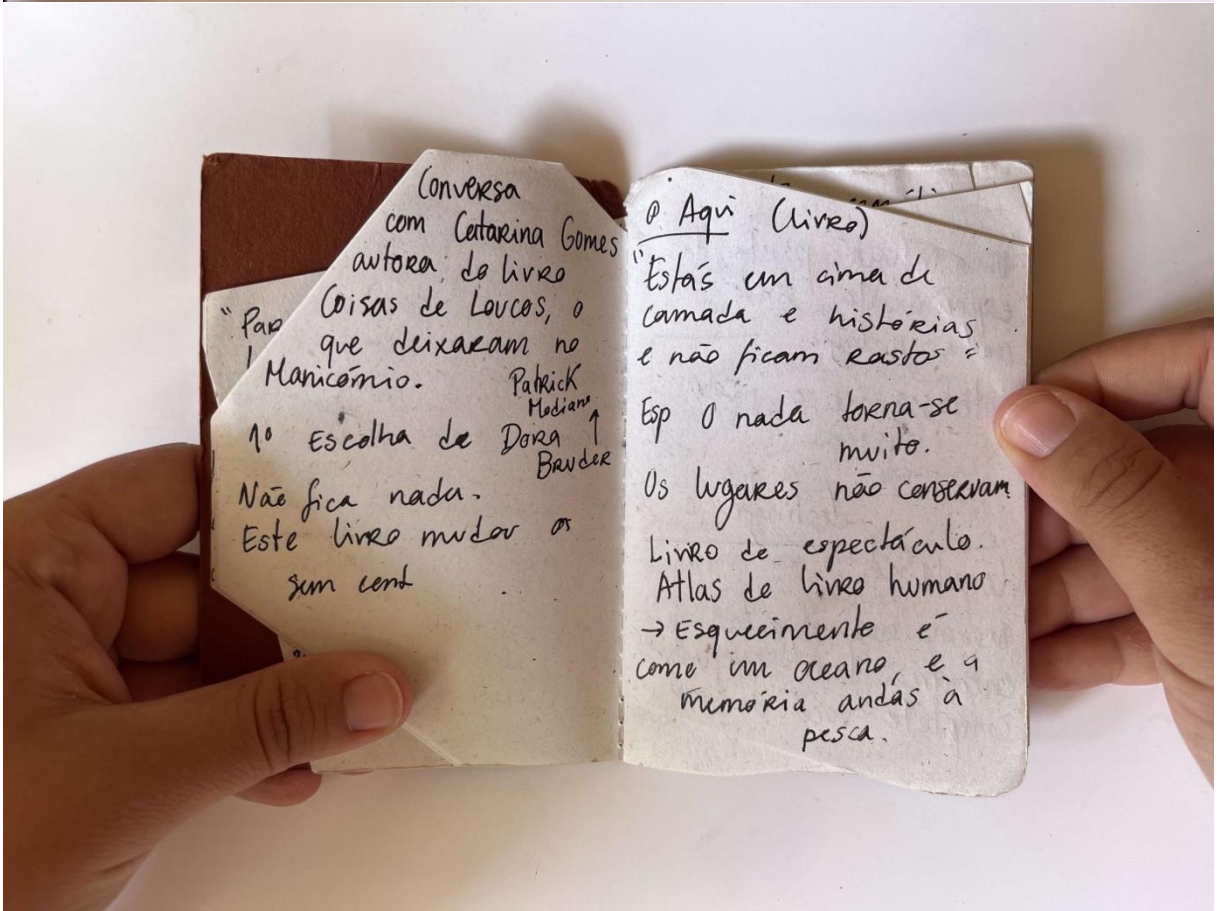 Conversa
com Catarina Gomes
autora do livro
Coisas de Loucos, o
que deixaram no
Manicómio.
Patrick
Modiano
1º Escolha de Dora ↑
Bruder
Não fica nada.
Este livro mudou os
sem cent
"Par
@ Aqui (livro)
"Estás em cima de
camada e histórias
e não ficam rastos"
Esp O nada torna-se
muito.
Os lugares não conservam
Livro de espectáculo.
Atlas de livro humano
→ Esquecimento é
como um oceano, e a
memória andas à
pesca.